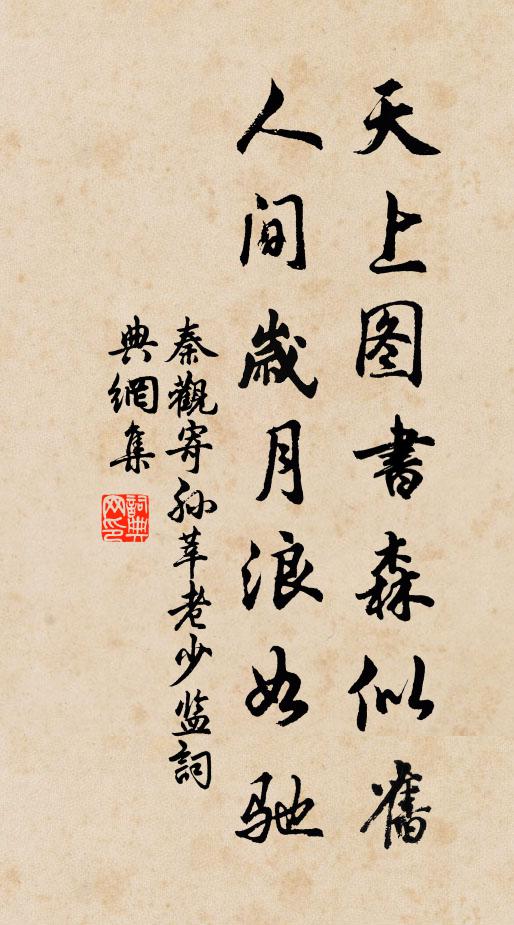 天上图書森似舊
人间歲月浪如馳
秦觀寄孙莘老少监詞
典網集
詞典网印